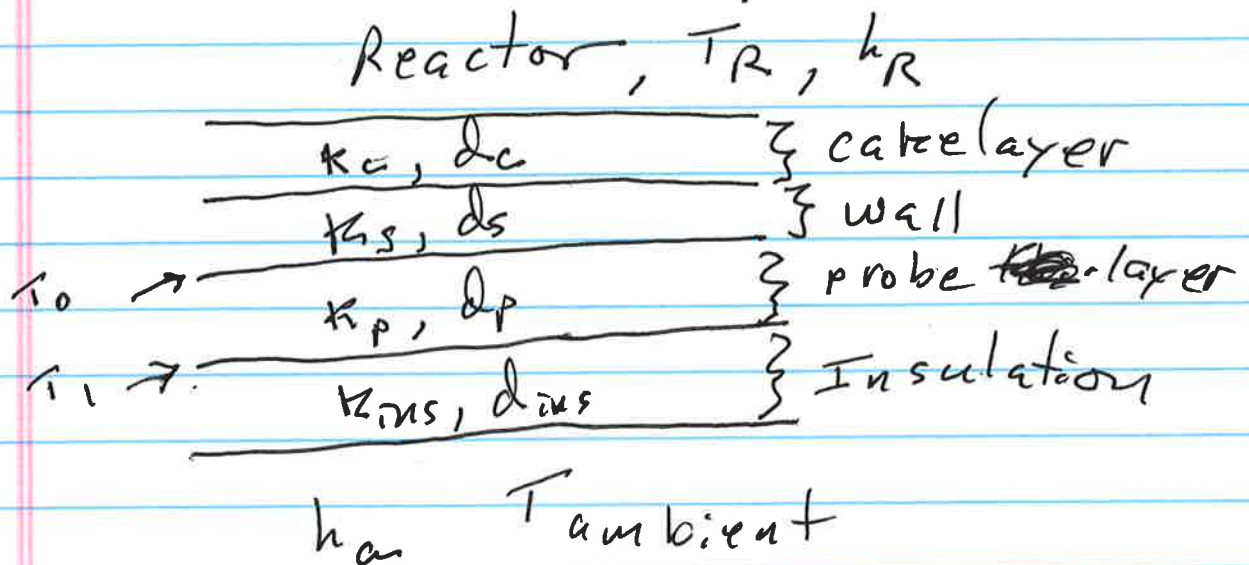 Reactor, T_R, h_R
k_c, d_c } cakelayer
k_s, d_s } wall
T_0 → k_p, d_p } probe layer
T_1 → k_ins, d_ins } Insulation
h_a T_ambient